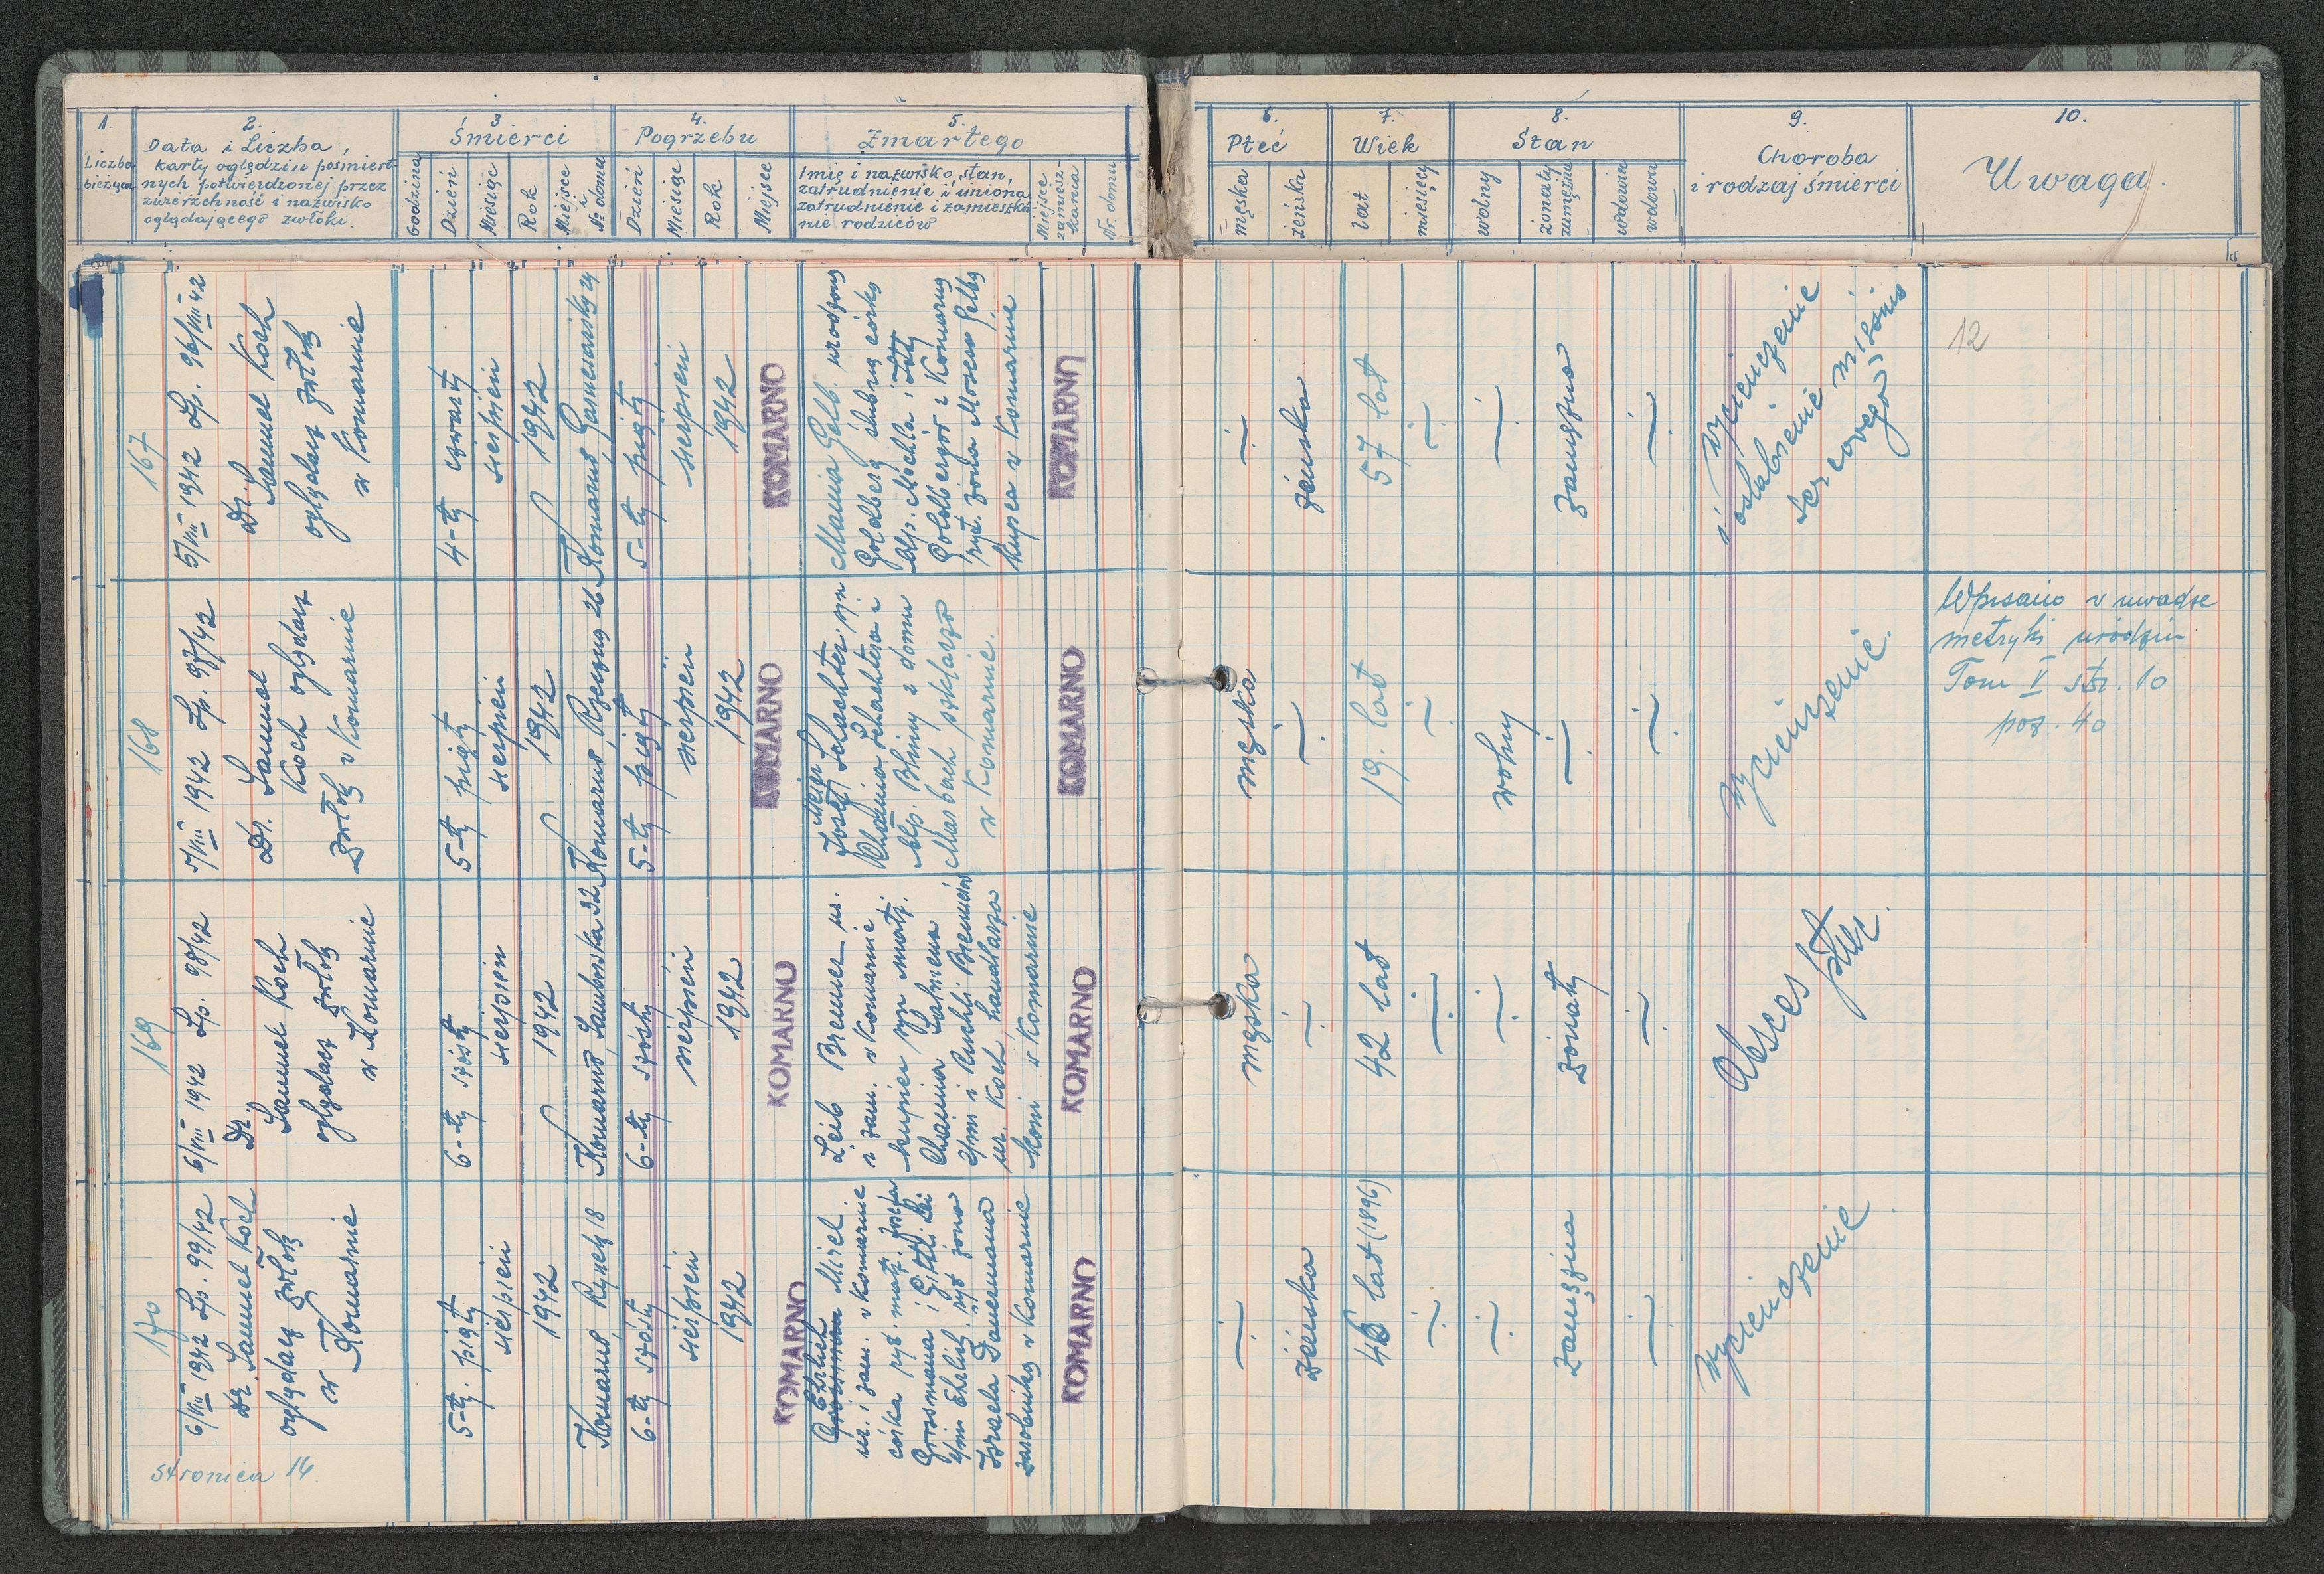 1.
Liczba
bieżąca
2.
Data i Liczba,
karty oględzin pośmiert-
nych potwierdzonej przez
zwierzchność i nazwisko
oglądającego zwłoki.
3
Śmierci
Godzina
Dzień
Miesiąc
Rok
Miejsce
i
№ domu
4.
Pogrzebu
Dzień
Miesiąc
Rok
Miejsce
5.
Zmarłego
Imię i nazwisko, stan,
zatrudnienie i imiona,
zatrudnienie i zamieszka-
nie rodziców
Miejsce
zamiesz-
kania
Nr. domu
6.
Płeć
męska
żeńska
7.
Wiek
lat
miesięcy
8.
Stan
wolny
żonaty
zamężna
wdowiec
wdowa
9.
Choroba
i rodzaj śmierci
10.
Uwaga.
167
5/VIII 1942 Lp. 96/VIII 42
Dr.
Samuel Koch
oglądacz zwłok
w Komarnie
4-ty czwarty
sierpień
1942
Komarno,
24
5-ty piąty
sierpień
1942
KOMARNO
Mania Gelb. urodzony
Goldberg ślubną córką
Mechla i
Goldbergów z Komarna
ryt. żona Mosesa Gelba
kupca w Komarnie
KOMARNO
żeńska
57 lat
zamężna
Wycieńczenie
i osłabienie mięśnia
sercowego
12
168
5/VIII 1942 Lp. 97/42
Dr. Samuel
Koch oglądacz
zwłok w Komarnie
5-ty piąty
sierpień
1942
Komarno, 26
5-ty piąty
sierpień
1942
KOMARNO
Meier
Josef Schachter, syn
Chaima Schachtera i
z domu
w Komarnie.
KOMARNO
męska
19. lat
wolny
Wycieńczenie.
Wpisano w uwadze
metryki urodzin
Tom V str. 10
poz. 40
169
6/VIII 1942 Lp. 98/42
Dr.
Samuel Koch
oglądacz zwłok
w Komarnie
6-ty szósty
sierpień
1942
Komarno, Samborska 32
6-ty szósty
sierpień
1942
KOMARNO
Leib Bremer ur.
i zam. w Komarnie
kupiec syn małż.
Chaima Salmena
2/im i Ruchli Bremerów
ur. Koch handlarza
koni w Komarnie
KOMARNO
męska
42 lat
żonaty
Absces płuc.
170
6/VIII 1942 Lp. 99/42
Dr. Samuel Koch
oglądacz zwłok
w Komarnie
5-ty. piąty
sierpień
1942
Komarno Rynek 18
6-ty szósty
sierpień
1942
KOMARNO
Ehrlich
Mirel
ur. i zam. w Komarnie
córka ryt. małż. Josefa
Grossmana i Gittli Lei
2/im Ehrlich, ryt żona
Izraela Dauermana
zarobnika w Komarnie
KOMARNO
żeńska
46 lat (1896)
zamężna
Wycieńczenie
stronica 14.